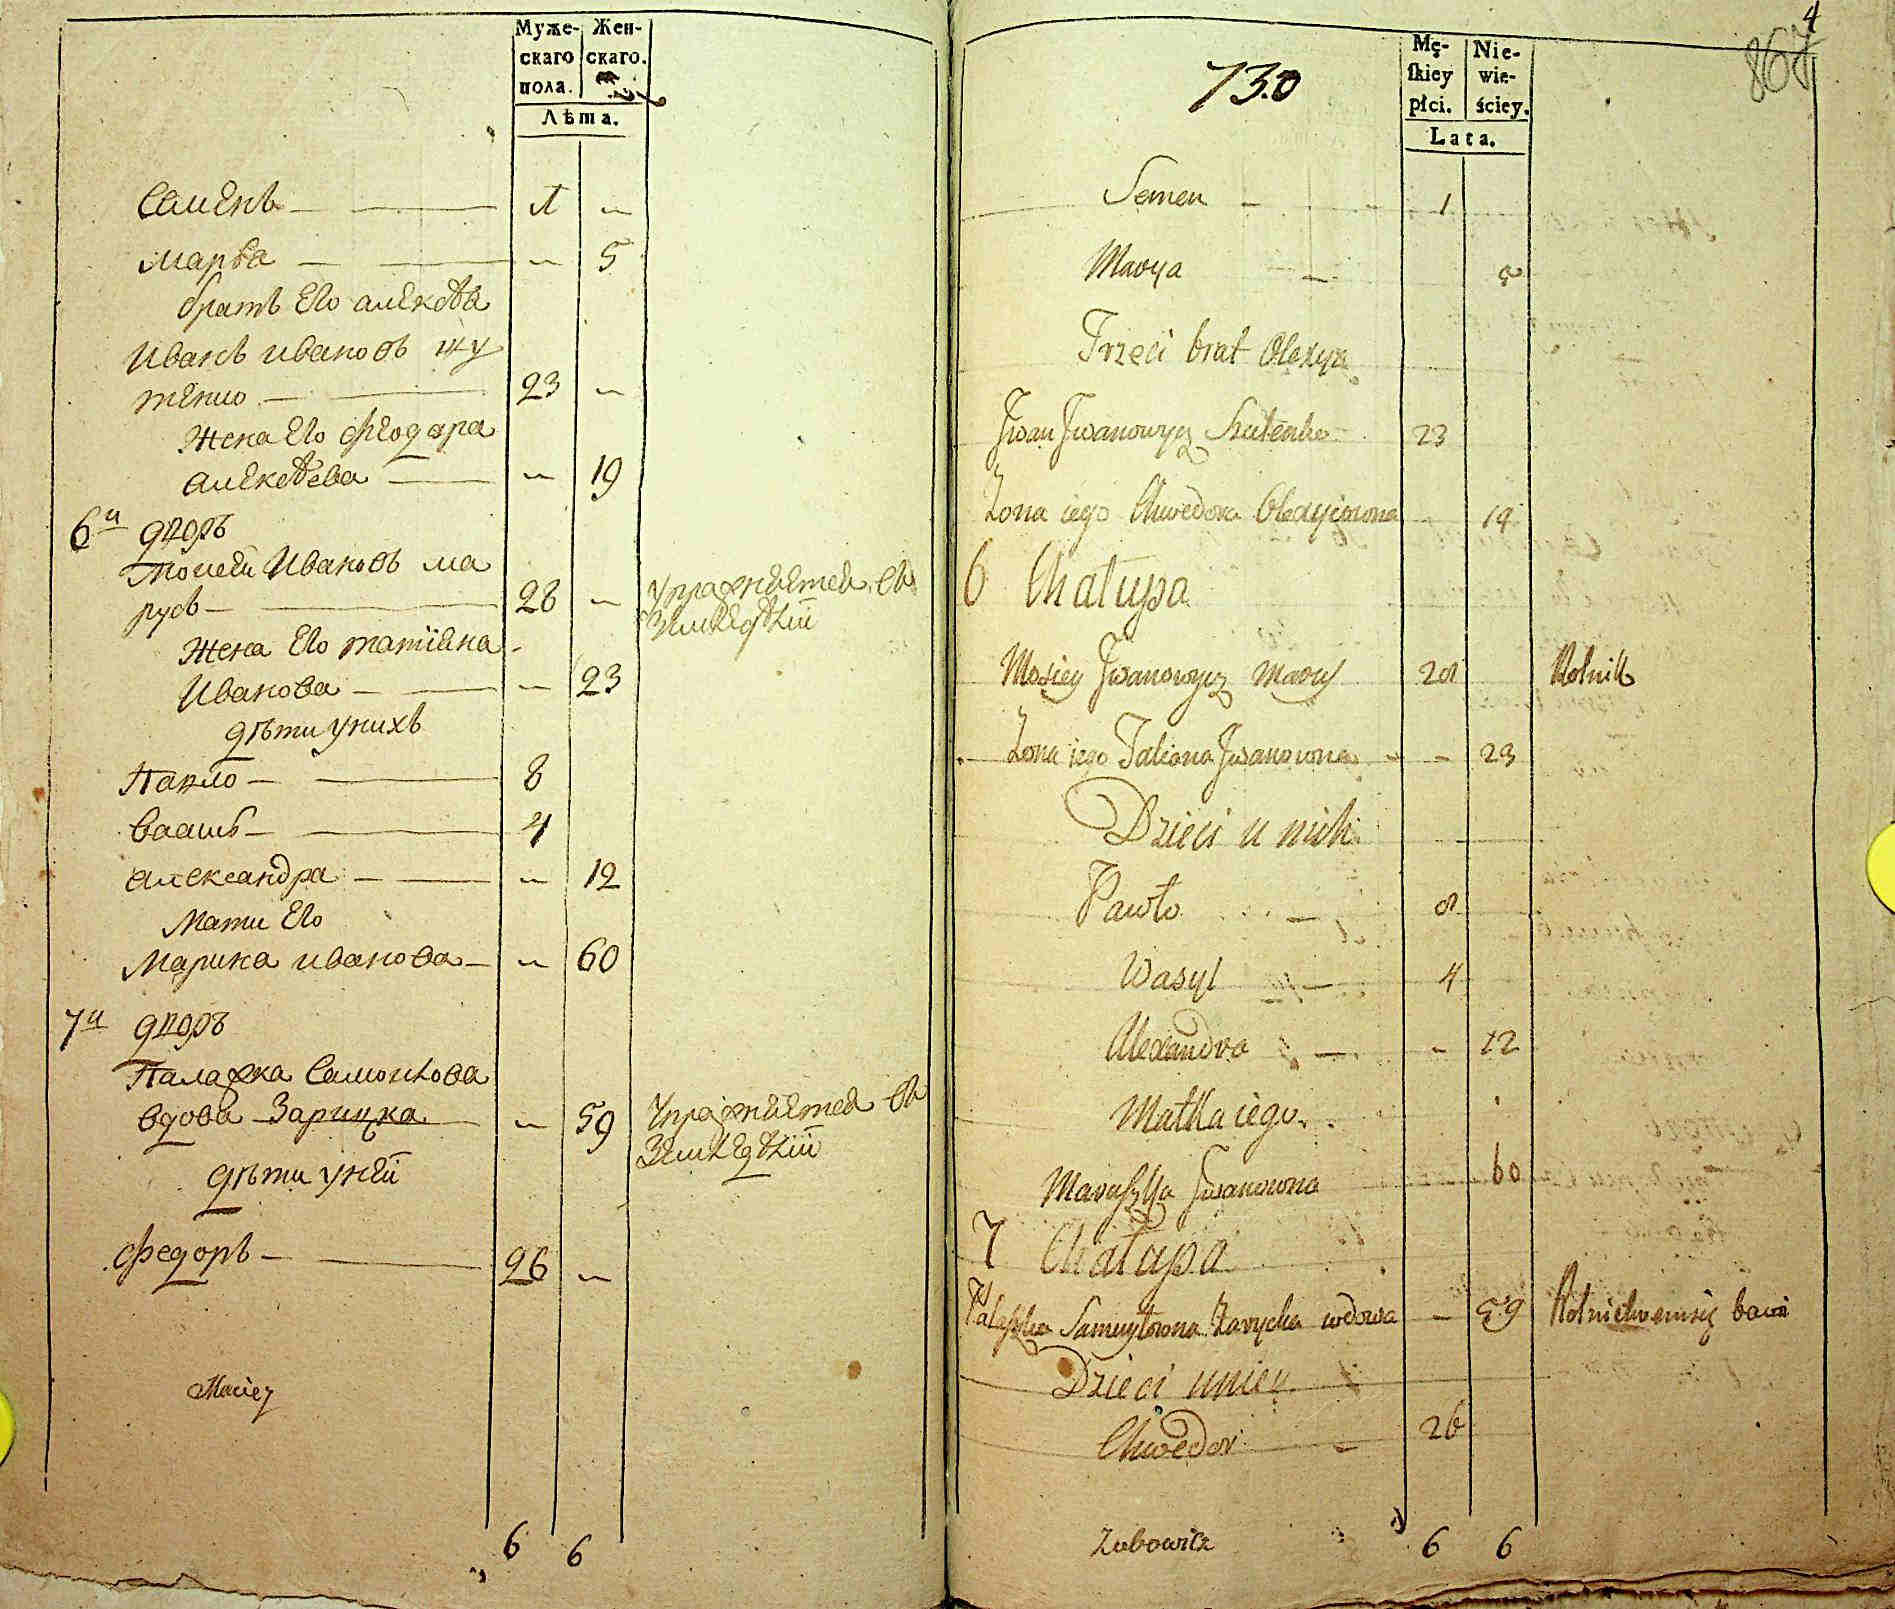 Муже- Жен-
скаго скаго.
пола.
Лѣта.
Семенъ 1 „
Марья „ 5
братъ Его алексѣа
Иванъ ивановъ шу
тенко 23 „
Жена Его Феодора
алексѣева „ 19
6й дворъ
Мосей Ивановъ ма
русь 28 „ Упражняется въ
земледѣліи
Жена Его татіана
Иванова „ 23
дѣти унихъ
Павло 8
Василь 4
александра „ 12
Мати Его
Марика иванова „ 60
7й дворъ
Палажка Самойлова
вдова Зарицка „ 59 Упражняется въ
земледѣліи
дѣти уней
Федоръ 26 „
Maciey
6 6
4
867
730
Mę- Nie-
skiey wie-
płci. ściey.
Lata.
Semen 1
Marya 5
Trzeci brat Olexya
Jwan Jwanowycz Szutenko 23
Żona iego Chwedora Olexyiowna 19
6 Chałupa
Mosiey Jwanowycz Marus 28 Rolnik
Żona iego Taliana Jwanowna 23
Dzieci u nich
Pawło 8
Wasyl 4
Alexandra 12
Matka iego
Maruszka Jwanowna 60
7 Chałupa
Pałaszka Samuyłowna Zarycka wdowa 59 Rolnictwem się bawi
Dzieci u niey
Chwedor 26
Zubowicz
6 6